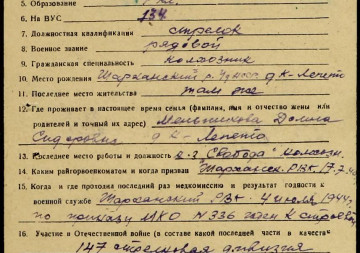 5. Образование кл.
6. На ВУС 134
7. Должностная квалификация стрелок
8. Военное звание рядовой
9. Гражданская специальность колхозник
10. Место рождения Шарканский р.
11. Последнее место жительства там же
12. Где проживает в настоящее время семья (фамилия, имя и отчество жены или
родителей и точный их адрес) Меньшикова
Сидоровна
13. Последнее место работы и должность Свобода
14. Каким райгорвоенкоматом и когда призван РВК 17.7.
15. Когда и где проходил последний раз медкомиссию и результат годности к
военной службе Шарканский РВК 4 июля 1944 г.
по приказу НКО №336 годен к строевой
16. Участие в Отечественной войне (в составе какой последней части и в качестве
147 стрелковая дивизия